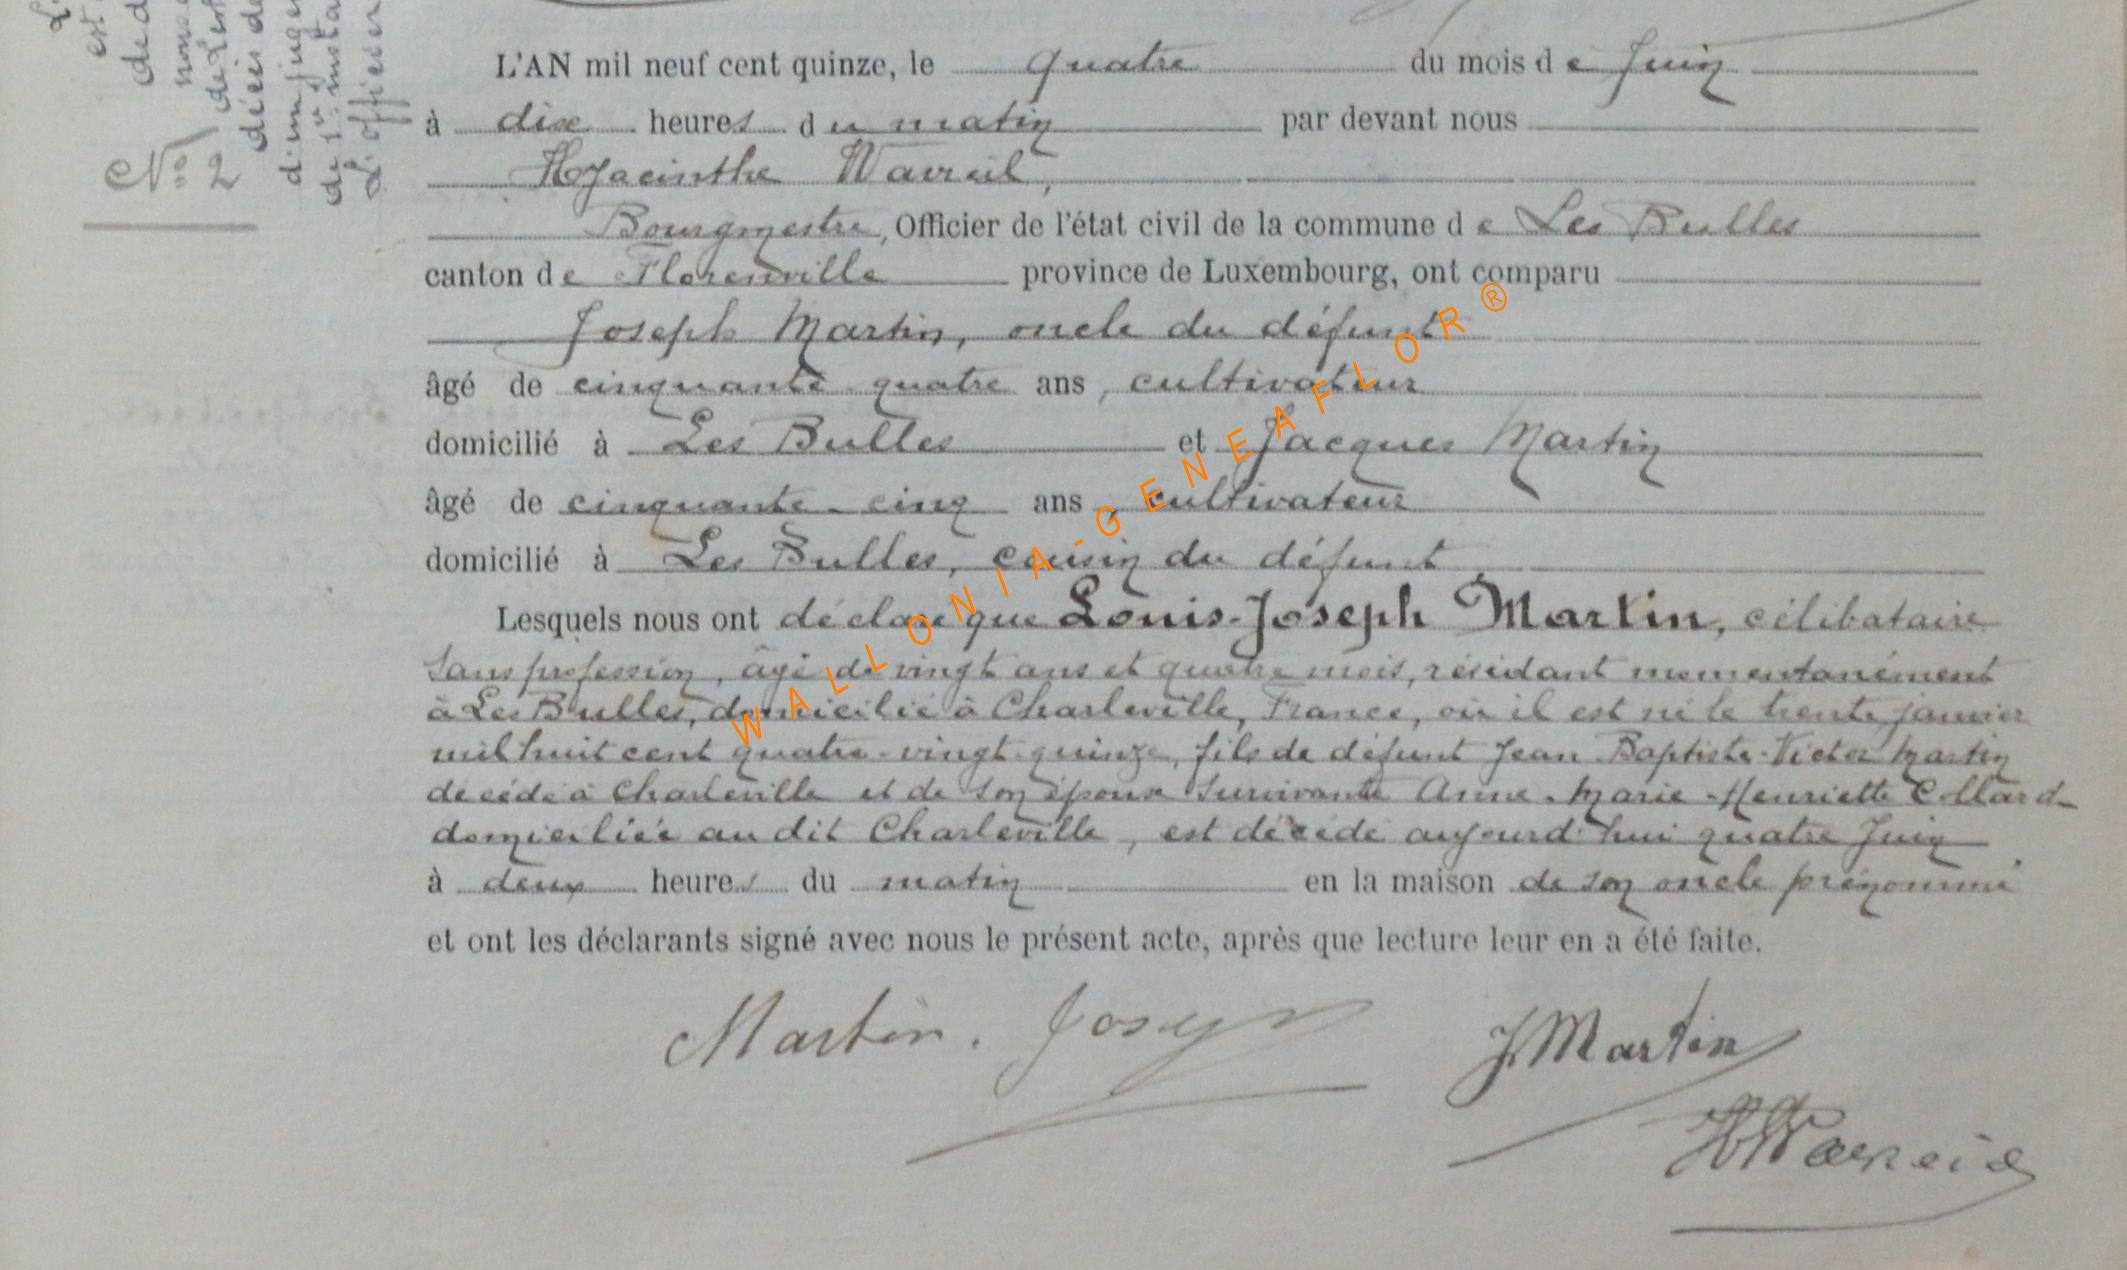 L'AN mil neuf cent quinze, le quatre du mois de Juin
à dix heures du matin par devant nous
Hyacinthe Wavreil,
Bourgmestre, Officier de l'état civil de la commune de Les Bulles
canton de Florenville province de Luxembourg, ont comparu
Joseph Martin, oncle du défunt
âgé de cinquante quatre ans, cultivateur
domicilié à Les Bulles et Jacques Martin
âgé de cinquante-cinq ans, cultivateur
domicilié à Les Bulles, cousin du défunt
Lesquels nous ont déclaré que Louis-Joseph Martin, célibataire
sans profession, âgé de vingt ans et quatre mois, résidant momentanément
à Les Bulles, domicilié à Charleville, France, où il est né le trente janvier
mil huit cent quatre-vingt-quinze, fils de défunt Jean Baptiste-Victor Martin
décédé à Charleville et de son épouse survivante Anne-Marie-Henriette Collard
domiciliée au dit Charleville, est décédé aujourd'hui quatre Juin
à deux heures du matin en la maison de son oncle prénommé
et ont les déclarants signé avec nous le présent acte, après que lecture leur en a été faite.
Martin. Joseph
J Martin
H Wavreil
N° 2
est
de d
nous
décès de
d'un juge
de 1re insta
L'officier
WALLONIA-GENEAFLOR®